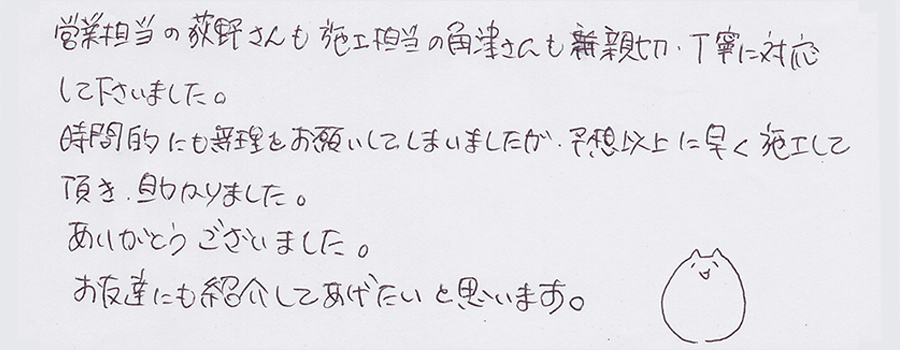 営業担当の荻野さんも施工担当の角津さんも親切・丁寧に対応
して下さいました。
時間的にも無理をお願いしてしまいましたが、予想以上に早く施工して
頂き、助かりました。
ありがとうございました。
お友達にも紹介してあげたいと思います。